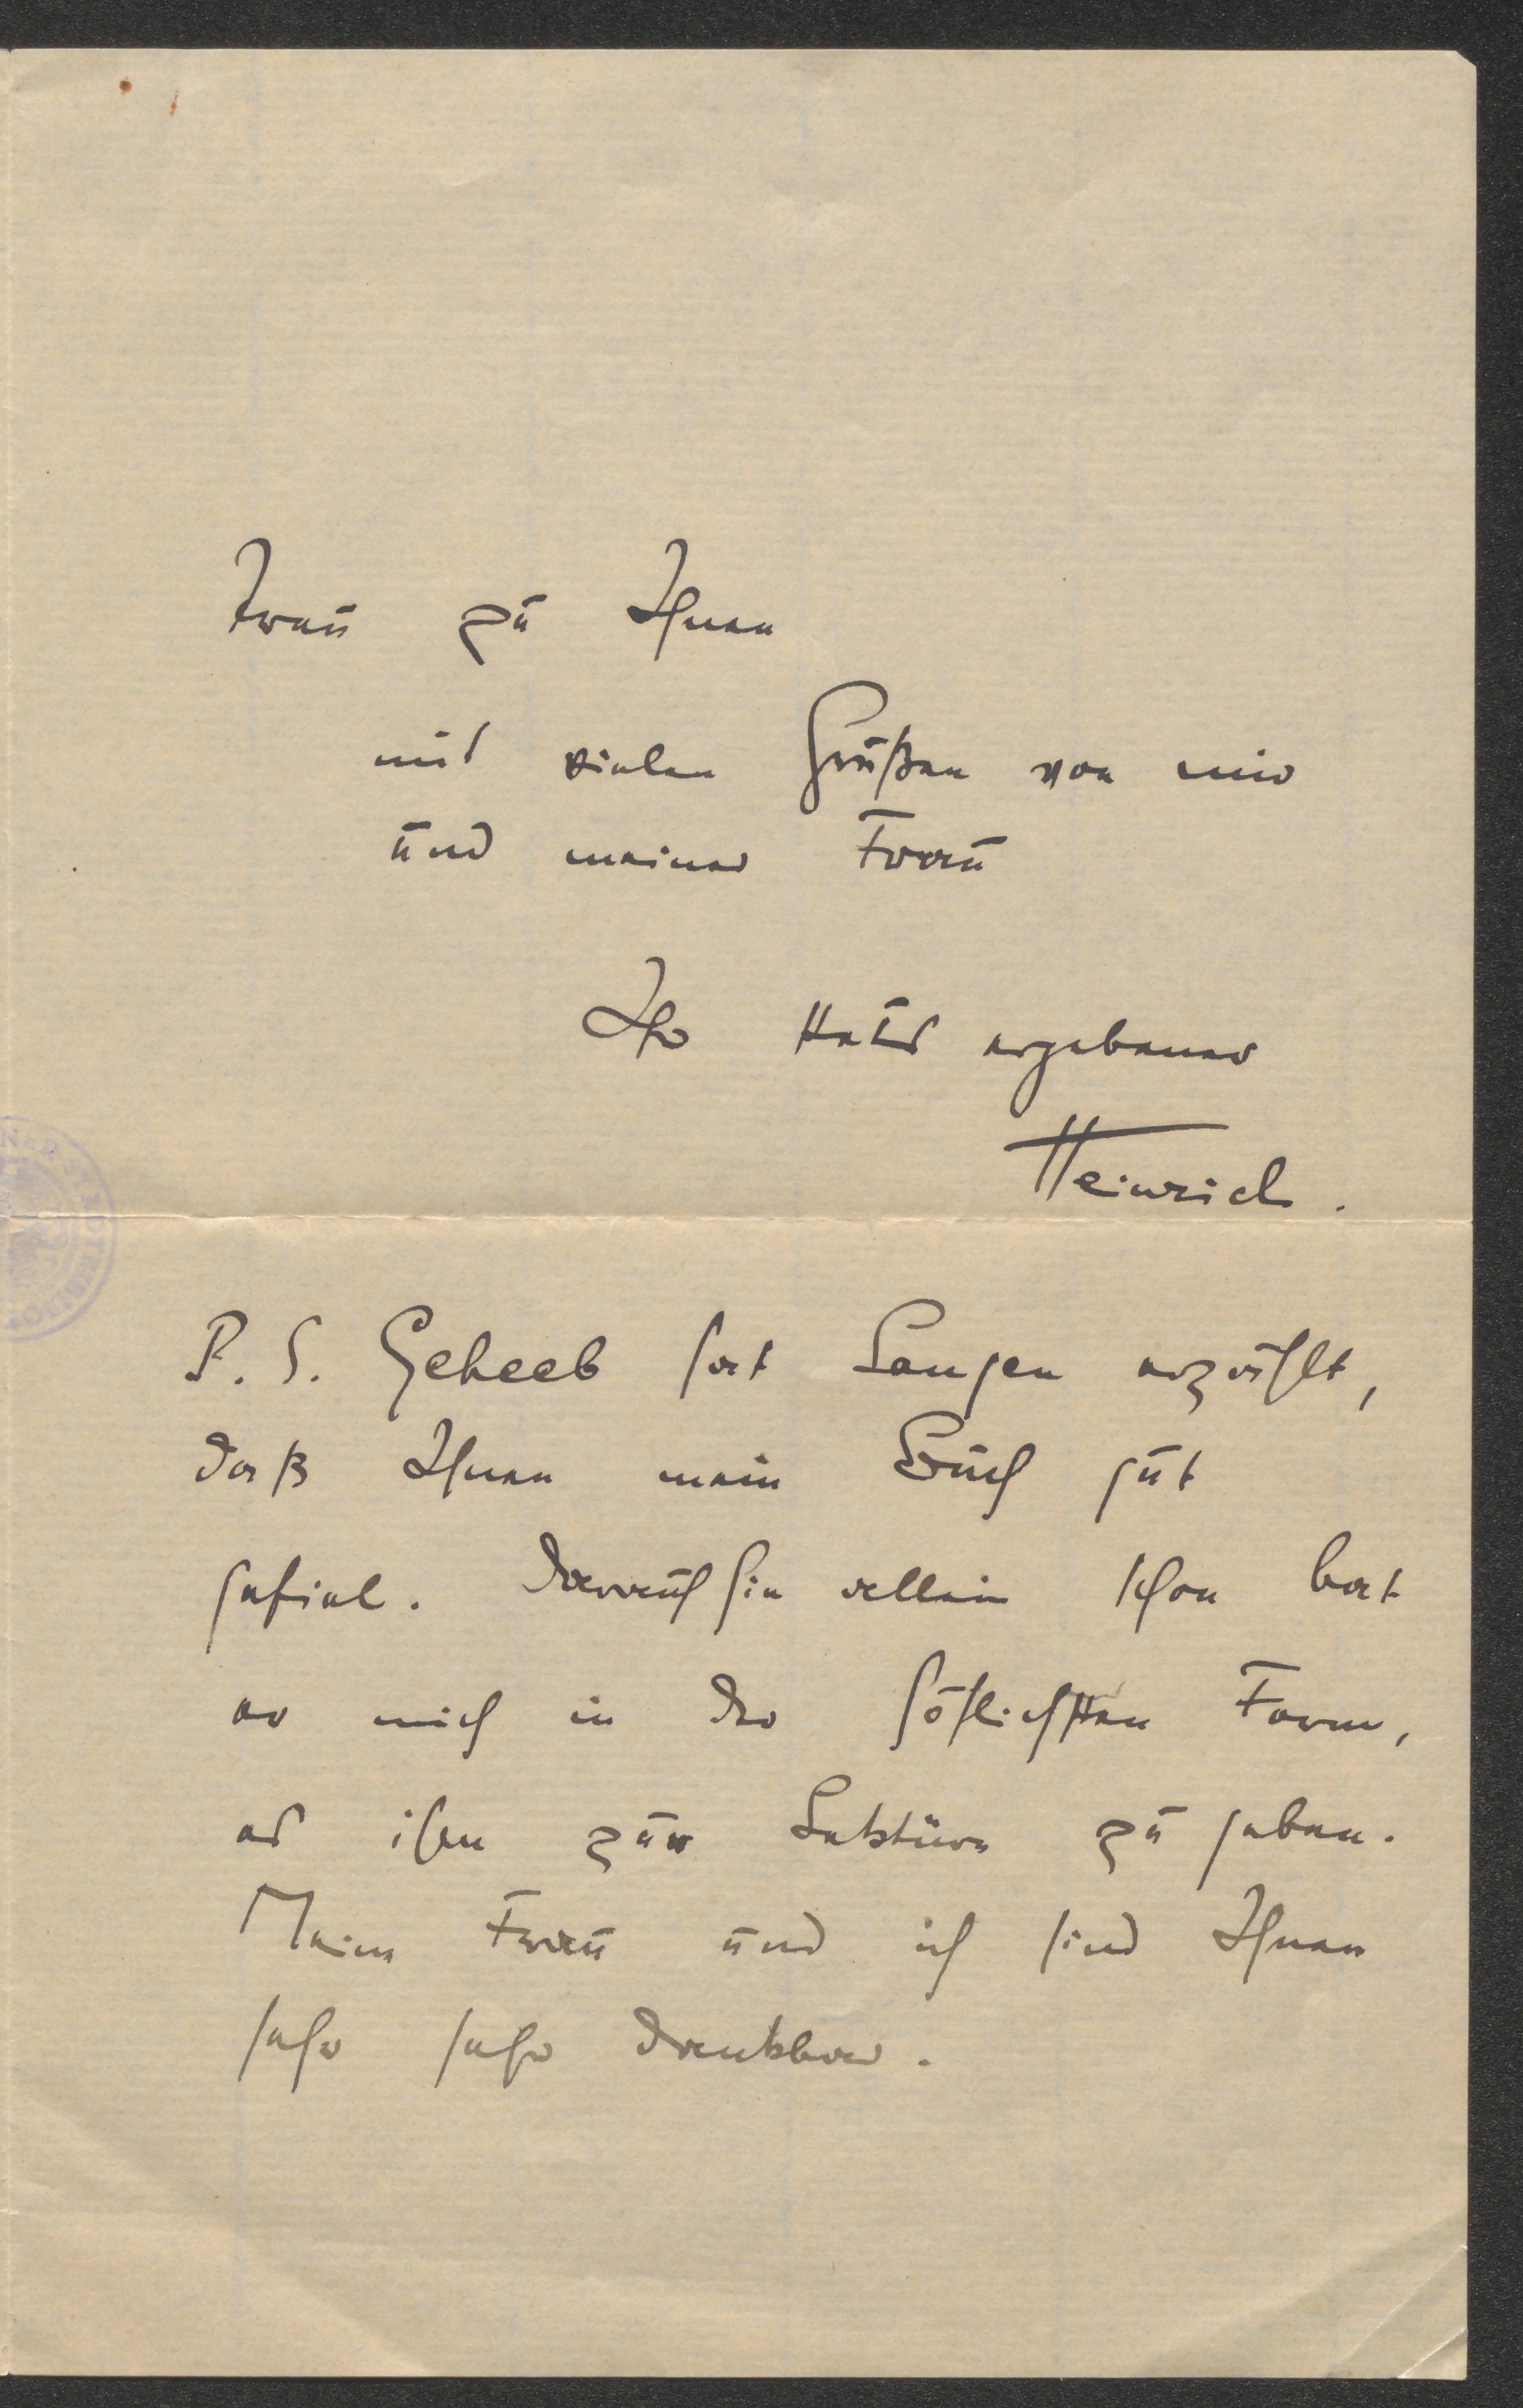 Frau zu Ihnen
mit vielen Grüßen von mir
und meiner Frau
Ihr stets ergebener
Heinrich.
P. S. Geheeb hat Langen erzählt,
daß Ihnen mein Buch gut
gefiel. Daraufhin allein schon bat
er mich in der höflichsten Form,
es ihm zur Lektüre zu geben.
Meine Frau und ich sind Ihnen
sehr sehr dankbar.